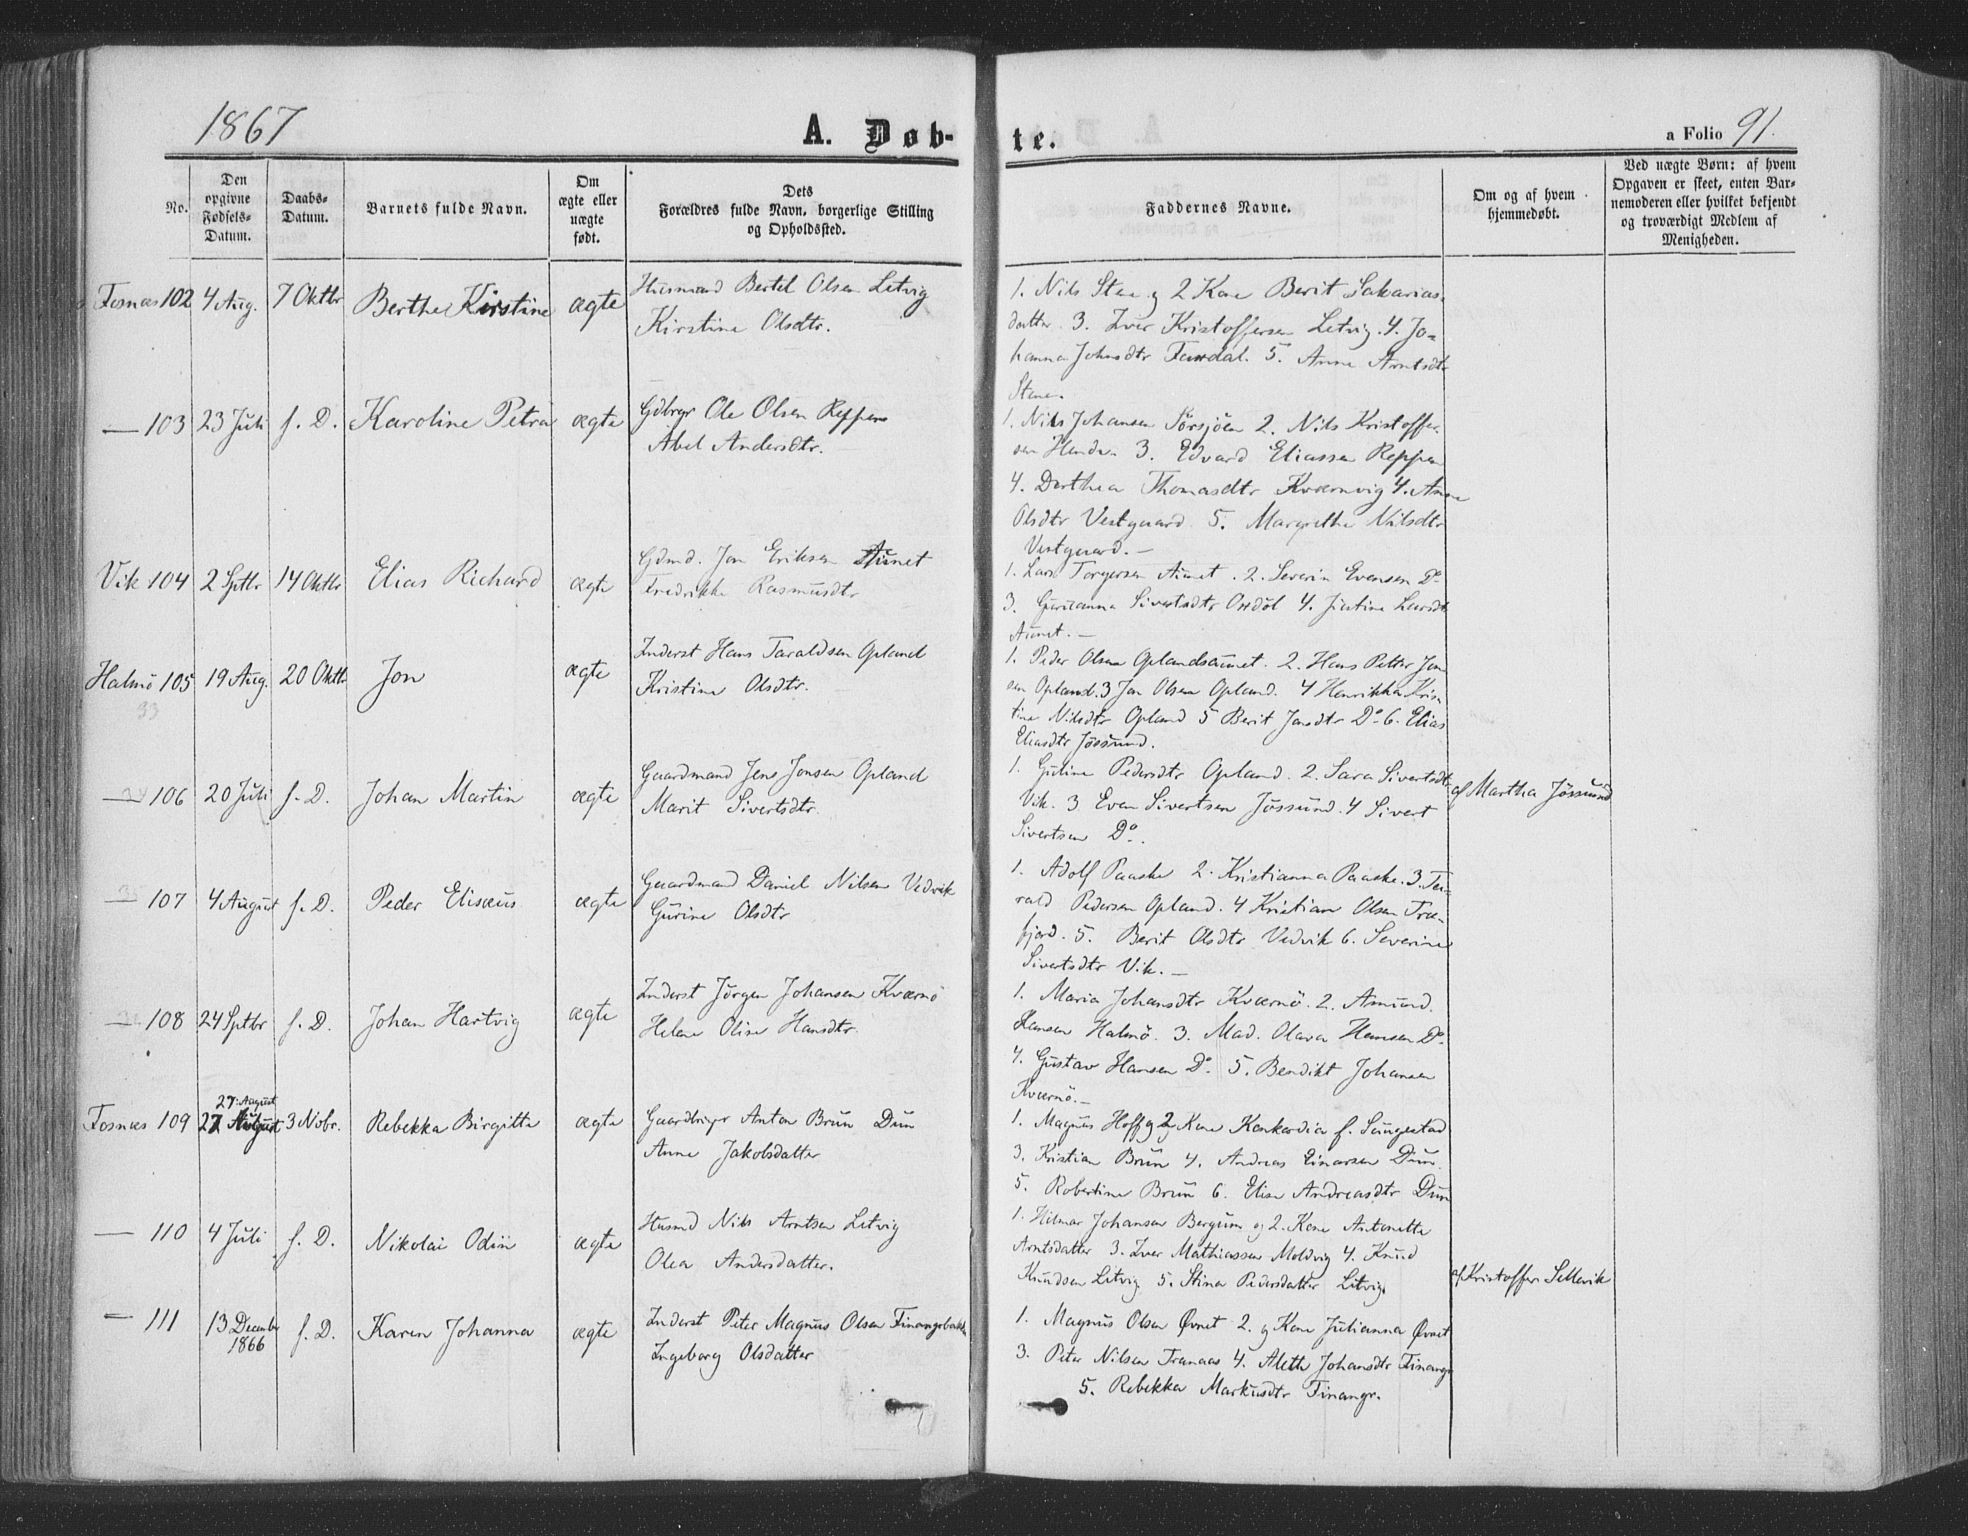 1867
A. Døb-
te.
a Folio 91.
No.
Den
opgivne
Fødsels-
Datum.
Daabs-
Datum.
Barnets fulde Navn.
Om
ægte eller
uægte
født.
Dets
Forældres fulde Navn, borgerlige Stilling
og Opholdssted.
Faddernes Navne.
Om og af hvem
hjemmedøbt.
Ved uægte Børn: af hvem
Opgaven er skeet, enten Bar-
nemoderen eller hvilket bekjendt
og troværdigt Medlem af
Menigheden.
Fosnæs 102 4 Aug. 7 Oktbr Berthe Kirstine ægte
Husmand Bertel Olsen Letvig
Kirstine Olsdtr.
1. Nils Stene og 2 Kone Berit Sakarias-
datter. 3. Iver Kristoffersen Letvig. 4. Jo-
hanna Johnsdtr Faksdal. 5. Anne Arntsdtr
Stene.
— 103 23 Juli s. D. Karoline Petra ægte
Gdbrgr Ole Olsen Reppen
Abel Andersdtr.
1. Nils Johansen Sørsjöen 2. Nils Kristoffer-
sen 3. Edvard Eliassen Reppen
4. Dorthea Thomasdtr Kværnvig 4. Anne
Olsdtr Vestgaard 5. Margrethe Nilsdtr
Vestgaard. —
Vik 104 2 Sptbr 14 Oktbr Elias Richard ægte
Gdmd. Jon Eriksen Aunet
Fredrikke Rasmusdtr
1. Lars Torgersen Aunet. 2. Severin Evensen Do
3. Gurianna Sivertsdtr 4. Justine Larsdtr
Aunet. —
Halmö 105 19 Aug. 20 Oktbr Jon ægte
33
Inderst Hans Taraldsen Opland
Kristine Olsdtr.
1. Peder Olsen Oplandsaunet. 2. Hans Petter Jon-
sen Opland. 3 Jon Olsen Opland. 4 Henrikka Kris-
tine Nilsdtr Opland 5 Berit Jonsdtr Do 6. Elias
Eliasdtr Jössund.
— 106 20 Juli s. D. Johan Martin ægte
Gaardmand Jens Jonsen Opland
Marit Sivertsdtr.
1. Guline Pedersdtr Opland. 2. Sara Sivertsdtr
Vik. 3 Even Sivertsen Jössund. 4 Sivert
Sivertsen Do.
af Martha Jössund
— 107 4 August s. D. Peder Elisæus ægte
Gaardmand Daniel Nilsen Vedvik
Gurine Olsdtr
1. Adolf Paaske 2. Kristianna Paaske. 3. Ta-
rald Pedersen Opland. 4 Kristian Olsen Træ-
fjord. 5. Berit Olsdtr Vedvik 6. Severine
Sivertsdtr Vik. —
— 108 24 Sptbr s. D. Johan Hartvig ægte
Inderst Jørgen Johansen Kværnö
Helene Oline Hansdtr.
1. Maria Johansdtr Kværnö. 2. Amund
Hansen Halmö. 3. Mad. Olava Hansen Do
4. Gustav Hansen Do. 5. Bendikt Johansen
Kværnö. —
27. August
Fosnæs 109 27 August 3 Nobr. Rebekka Birgitte ægte
Gaardbrgr Anton Brun Dun
Anne Jakobsdatter
1. Magnus Hoff og 2 Kone Konkordia f. Sungestad
3. Kristian Brun 4. Andreas Einarsen Dun
5. Robertine Brun 6. Elise Andreasdtr Dun
— 110 4 Juli s. D. Nikolai Odin ægte
Husmd Nils Arntsen Letvig
Olea Andersdatter.
1. Hilmar Johansen Bergum og 2. Kone Antonette
Arntsdatter 3. Iver Mathiassen Moldvig 4. Knud
Knudsen Letvig 5. Stina Pedersdatter Letvig.
af Kristoffer Settervik
— 111 13 Decembr 1866 s. D. Karen Johanna ægte
Inderst Peter Magnus Olsen Finangsbakk
Ingeborg Olsdatter
1. Magnus Olsen Øvret 2. og Kone Julianna Øvret
3. Peter Nilsen Tranaas 4. Aleth Johansdtr Finangr
5. Rebekka Markusdtr Finangr.